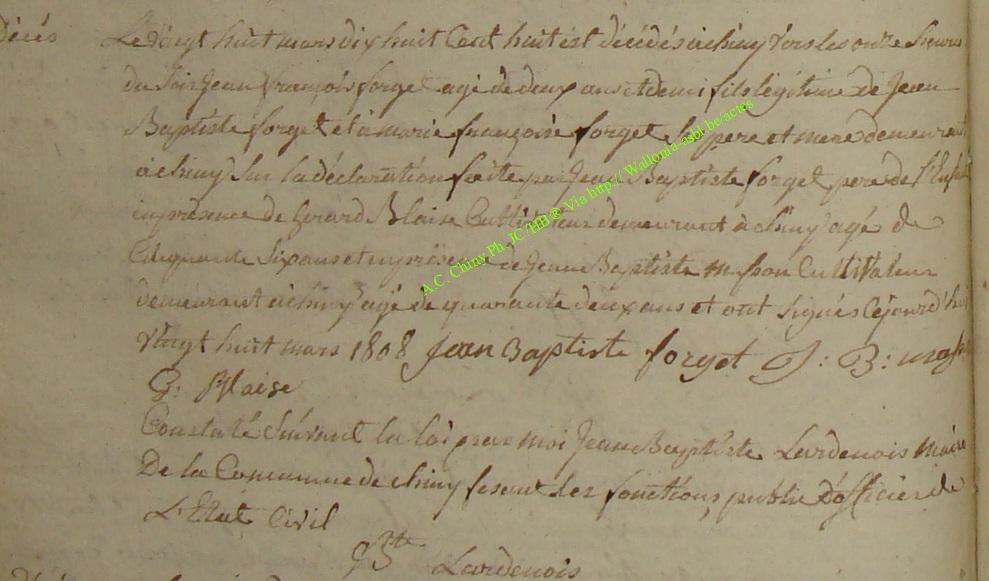 décés
Le vingt huit mars dix huit Cent huit est décédés à chiny vers les onze heures
du soir Jean françois forget agé de deux ans et demi fils légitime de Jean
Baptiste forget et à marie françoise forget le pere et mere demeurant
à chiny Sur la déclaration faite par Jean Baptiste forget pere de l'Enfant
en présence de Gerard Blaise Cultivateur demeurant à chiny agé de
Cinquante Six ans et en présence de Jean Baptiste Cultivateur
demeurant à chiny agé de quarante deux ans et ont Signés Cejourd'hui
Vingt huit mars 1808 Jean Baptiste forget J: B:
G: Blaise
Constaté Suivant la loi par moi Jean Baptiste Lardenois maire
De la Commune de chiny fesant Les fonctions public d'officier de
L'Etat Civil
JBte Lardenois
A.C. Chiny Ph. JC/HB ® Via http:// Wallonia-asbl.be/actes